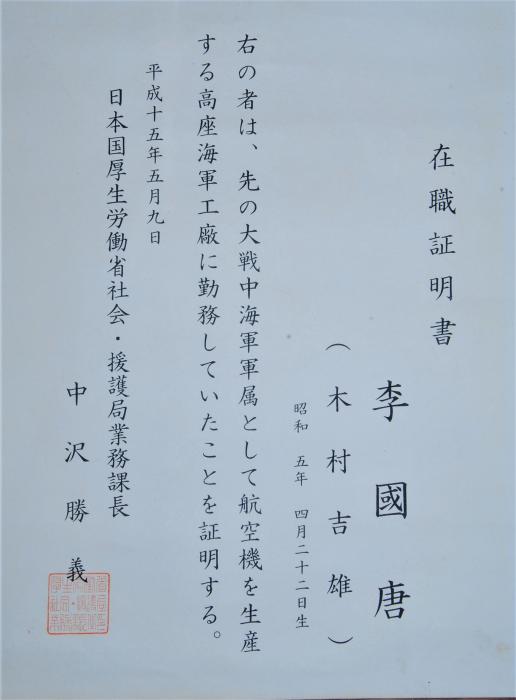 在職証明書
李國唐
（木村吉雄）
昭和 五年 四月二十二日生
右の者は、先の大戦中海軍軍属として航空機を生産
する高座海軍工廠に勤務していたことを証明する。
平成十五年五月九日
日本国厚生労働省社会・援護局業務課長
中沢勝義